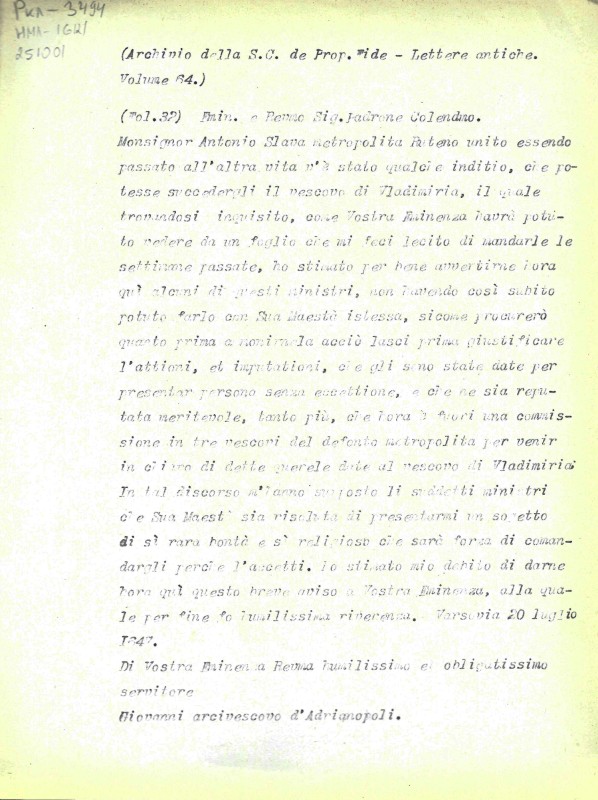 РКА-3494
НМА-1621
251001
(Archivio della S.C. de Prop. Fide - Lettere antiche.
Volume 64.)
(Fol.32) Emin. e Revmo Sig.Padrone Colendmo.
Monsignor Antonio Slava metropolita Ruteno unito essendo
passato all'altra vita v'è stato qualche inditio, che po-
tesse succedergli il vescovo di Vladimiria, il quale
trovandosi inquisito, come Vostra Eminenza havrà potu-
to vedere da un foglio che mi feci lecito di mandarle le
settimane passate, ho stimato per bene avvertirne hora
quì alcuni di questi ministri, non havendo così subito
potuto farlo con Sua Maestà istessa, sicome procurerò
quanto prima a acciò lasci prima giustificare
l'attioni, et imputationi, che gli sono state date per
presentar persona senza eccettione, e che ne sia repu-
tata meritevole, tanto più, che hora è fuori una commis-
sione in tre vescovi del defonto metropolita per venir
in chiaro di dette querele date al vescovo di Vladimiria;
In tal discorso m'hanno supposto li suddetti ministri
che Sua Maestà sia risoluta di presentarmi un sogetto
di sì rara bontà e sì religioso che sarà forza di coman-
dargli perche l'accetti. Ho stimato mio debito di darne
hora quì questo breve aviso a Vostra Eminenza, alla qua-
le per fine fo humilissima riverenza. Varsovia 20 luglio
I647.
Di Vostra Eminenza Revma humilissimo et obligatissimo
servitore
Giovanni arcivescovo d'Adrignopoli.